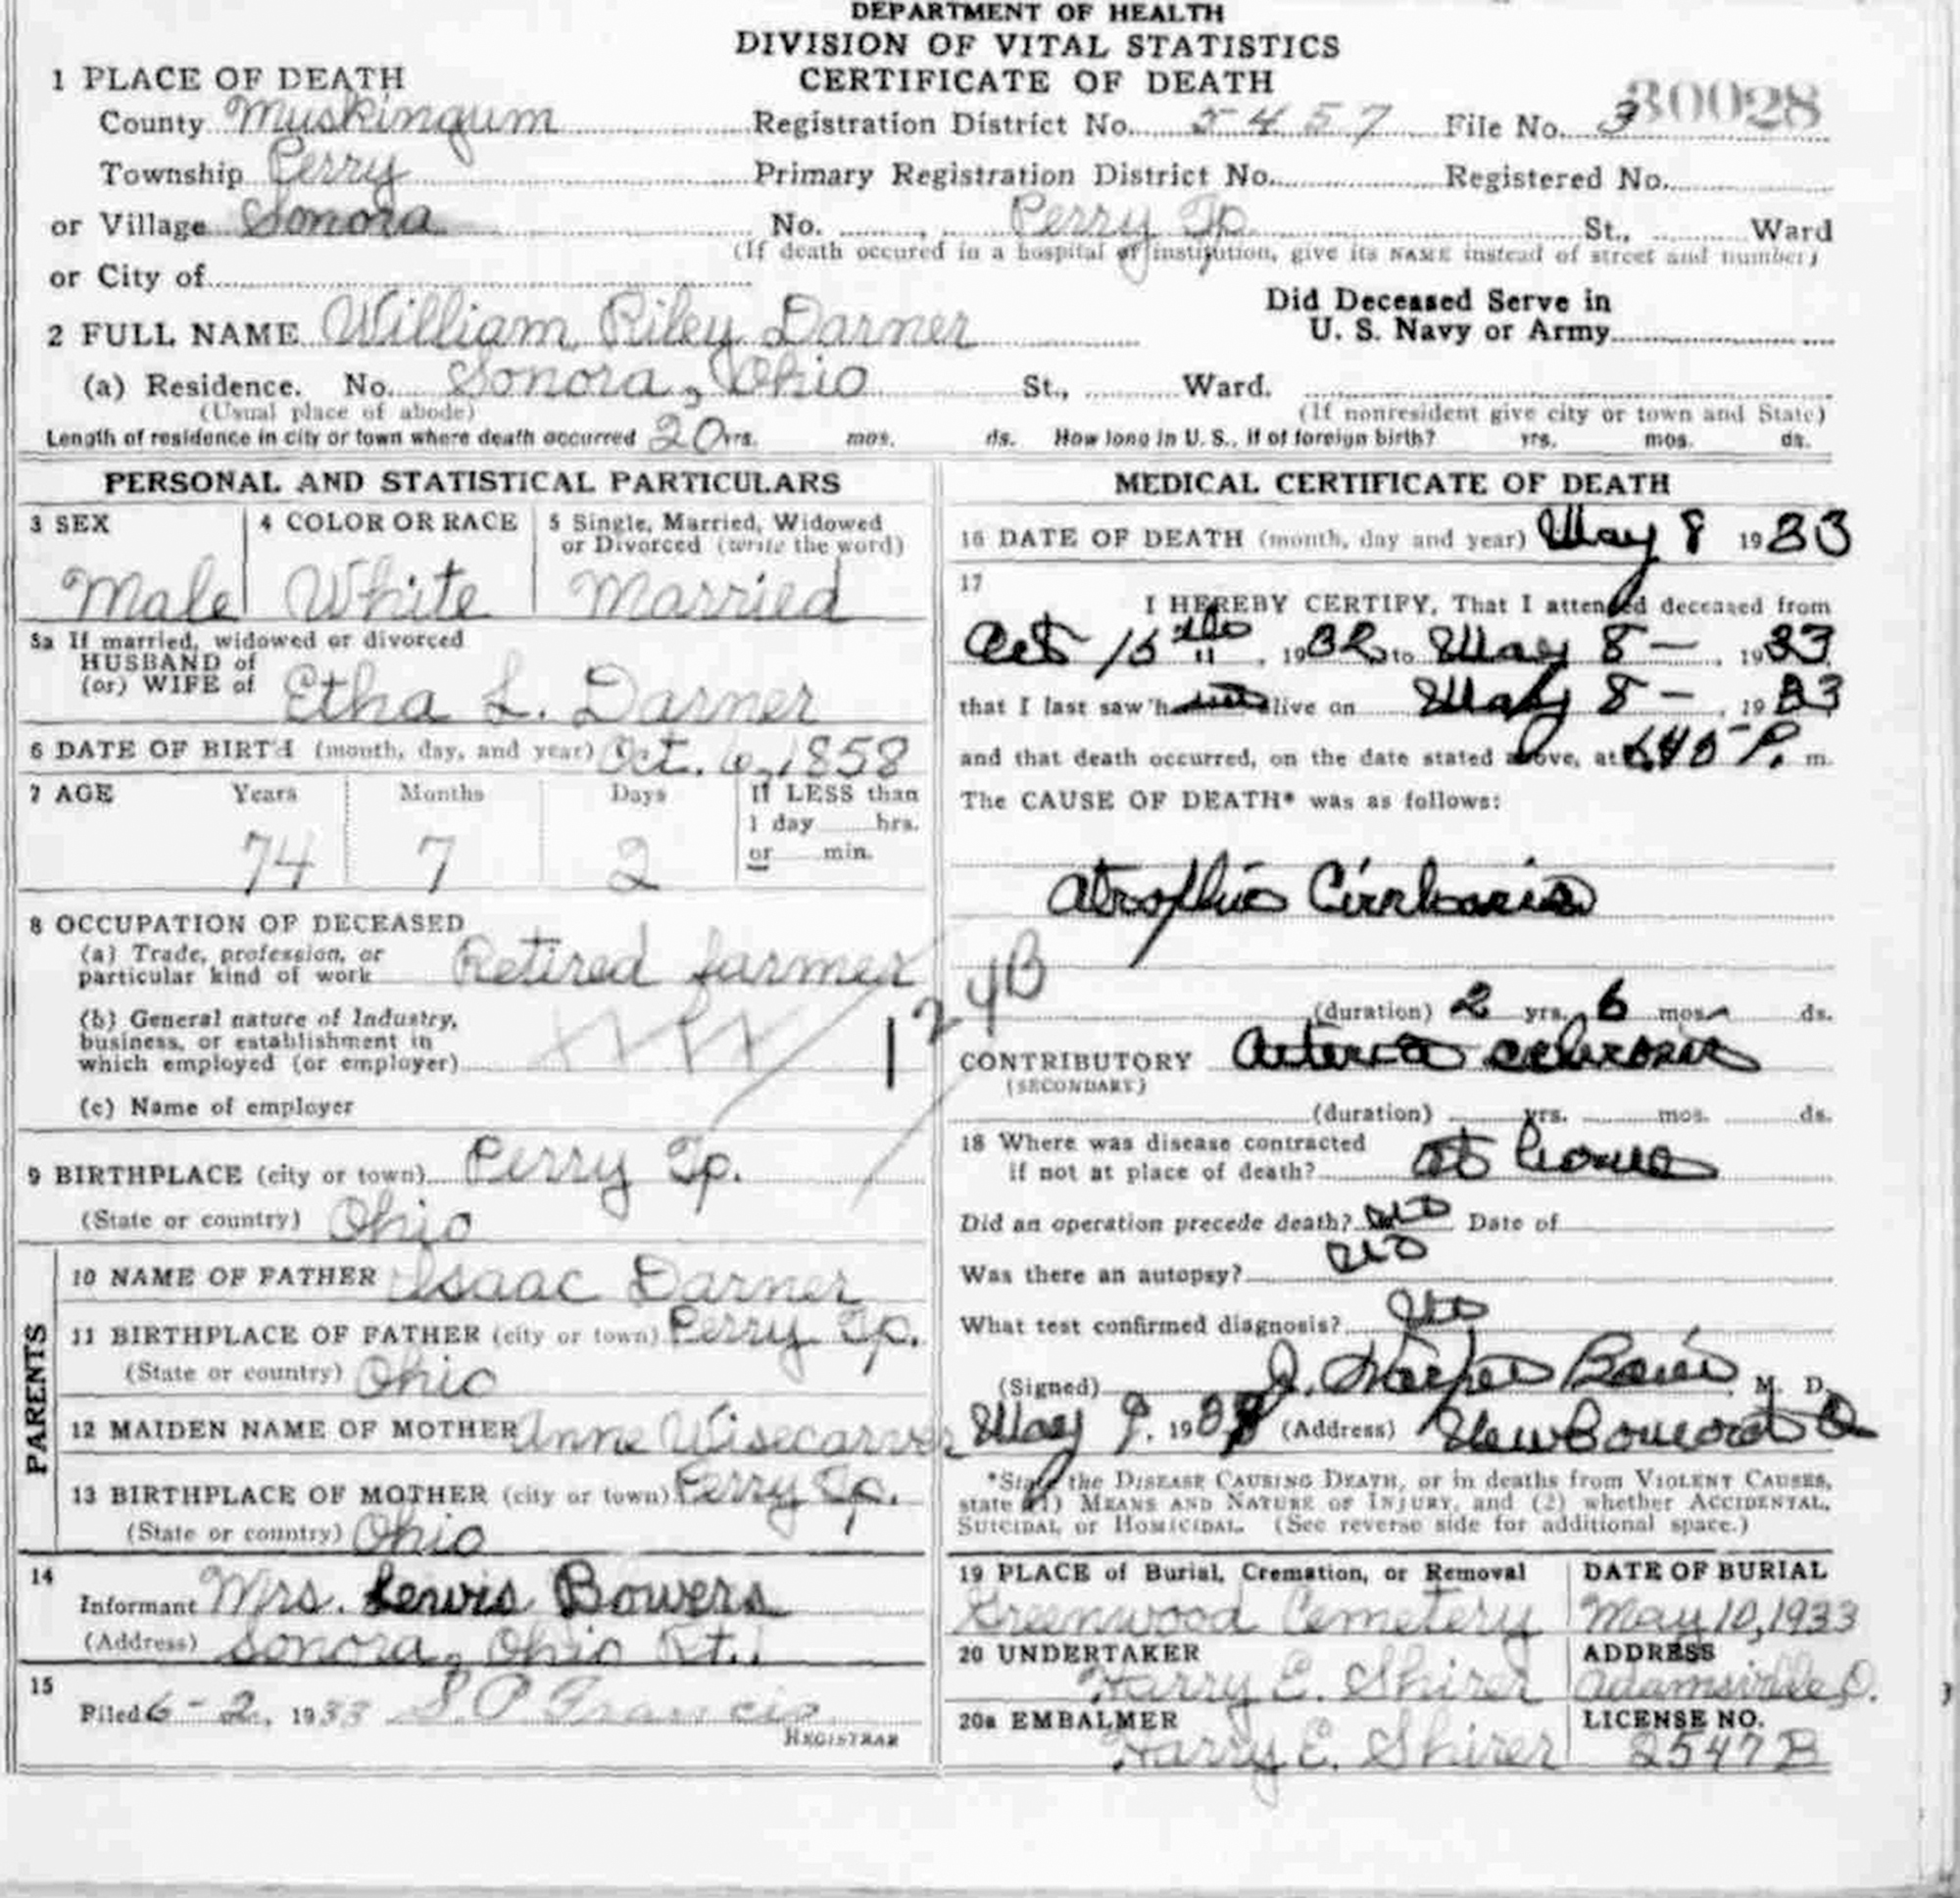 DEPARTMENT OF HEALTH
DIVISION OF VITAL STATISTICS
CERTIFICATE OF DEATH
1 PLACE OF DEATH
30028
County Muskingum Registration District No. 5457 File No. 3
Township Perry Primary Registration District No. Registered No.
or Village Sonora No. Perry Tp. St., Ward
(If death occured in a hospital or institution, give its NAME instead of street and number)
or City of
Did Deceased Serve in
U. S. Navy or Army
2 FULL NAME William Riley Darner
(a) Residence. No. Sonora, Ohio St., Ward.
(Usual place of abode) (If nonresident give city or town and State)
Length of residence in city or town where death occurred 20 yrs. mos. ds. How long in U. S., if of foreign birth? yrs. mos. ds.
PERSONAL AND STATISTICAL PARTICULARS
3 SEX
Male
4 COLOR OR RACE
White
5 Single, Married, Widowed
or Divorced (write the word)
Married
5a If married, widowed or divorced
HUSBAND of
(or) WIFE of Etha L. Darner
6 DATE OF BIRTH (month, day, and year) Oct. 6, 1858
7 AGE Years Months Days If LESS than
1 day hrs.
or min.
74 7 2
8 OCCUPATION OF DECEASED
(a) Trade, profession, or
particular kind of work Retired farmer
(b) General nature of Industry,
business, or establishment in
which employed (or employer)
124B
(c) Name of employer
9 BIRTHPLACE (city or town) Perry Tp.
(State or country) Ohio
PARENTS
10 NAME OF FATHER Isaac Darner
11 BIRTHPLACE OF FATHER (city or town) Perry Tp.
(State or country) Ohio
12 MAIDEN NAME OF MOTHER Anne Wisecarver
13 BIRTHPLACE OF MOTHER (city or town) Perry Tp.
(State or country) Ohio
14
Informant Mrs. Lewis Bowers
(Address) Sonora, Ohio Rt. 1
15
Filed 6-2, 1933 S. P. Francis
REGISTRAR
MEDICAL CERTIFICATE OF DEATH
16 DATE OF DEATH (month, day and year) May 8 1933
17
I HEREBY CERTIFY, That I attended deceased from
Oct 15 th, 1932, to May 8 —, 1933
that I last saw h alive on May 8 —, 1933
and that death occurred, on the date stated above, at 640 P. m.
The CAUSE OF DEATH* was as follows:
Atrophic Cirrhosis
(duration) 2 yrs. 6 mos. ds.
CONTRIBUTORY Arterio sclerosis
(SECONDARY)
(duration) yrs. mos. ds.
18 Where was disease contracted
if not at place of death? at home
Did an operation precede death? no Date of
Was there an autopsy? no
What test confirmed diagnosis?
(Signed) J. M. D.
May 9, 193 (Address) New Concord O
*State the DISEASE CAUSING DEATH, or in deaths from VIOLENT CAUSES,
state (1) MEANS AND NATURE OF INJURY, and (2) whether ACCIDENTAL,
SUICIDAL or HOMICIDAL. (See reverse side for additional space.)
19 PLACE of Burial, Cremation, or Removal
Greenwood Cemetery
DATE OF BURIAL
May 10, 1933
20 UNDERTAKER
Harry E. Shirer
ADDRESS
Adamsville, O.
20a EMBALMER
Harry E. Shirer
LICENSE NO.
2547B